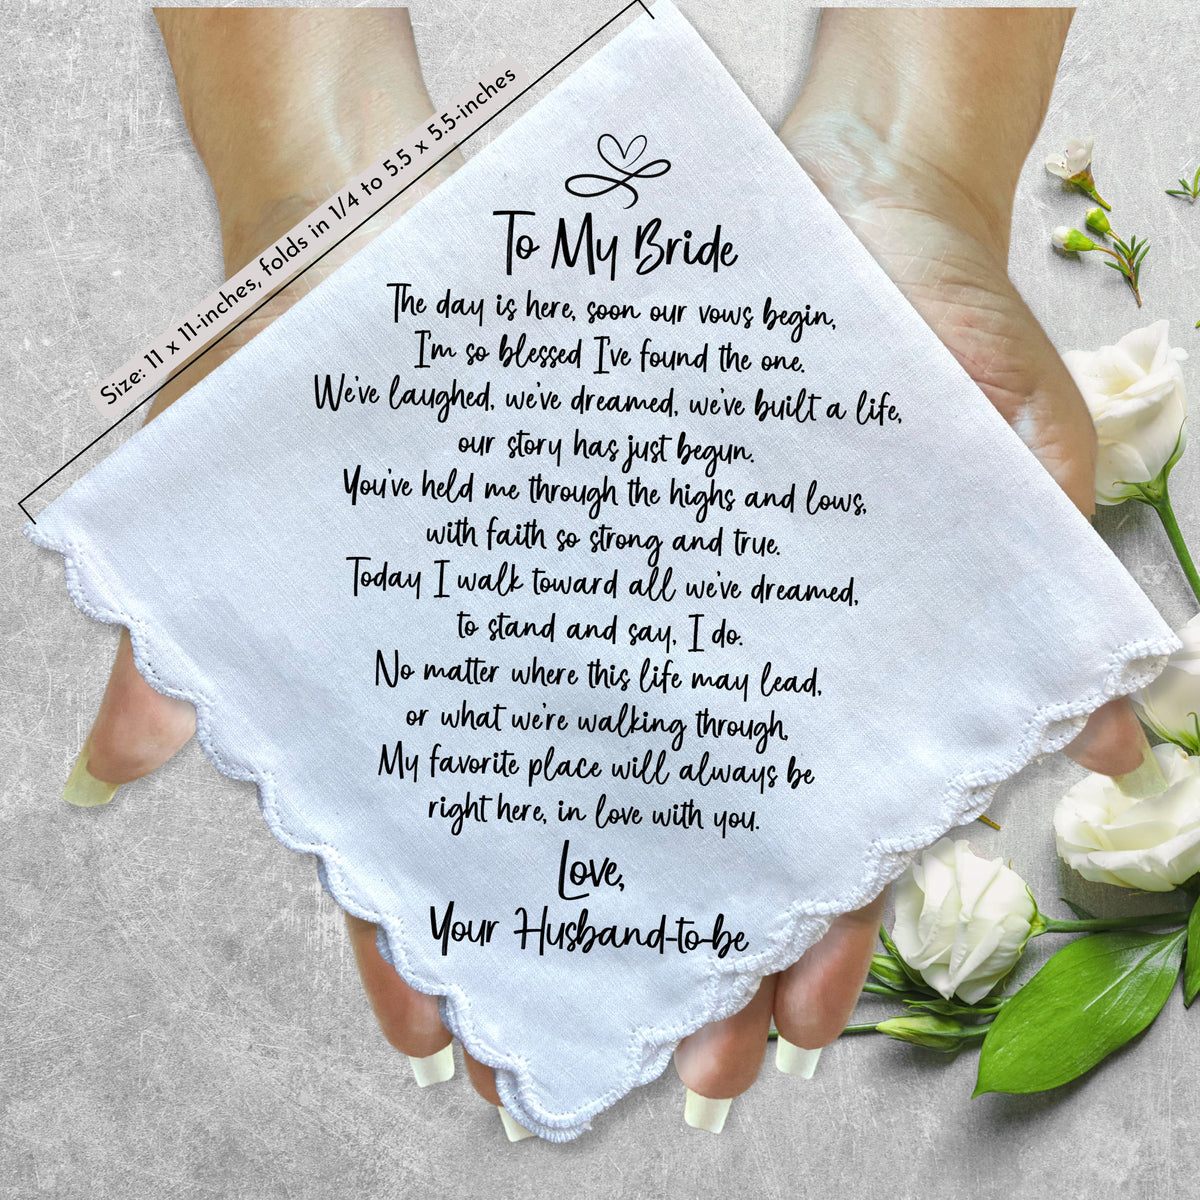 Size: 11 x 11-inches, folds in 1/4 to 5.5 x 5.5-inches
To My Bride
The day is here, soon our vows begin,
I'm so blessed I've found the one.
We've laughed, we've dreamed, we've built a life,
our story has just begun.
You've held me through the highs and lows,
with faith so strong and true.
Today I walk toward all we've dreamed,
to stand and say, I do.
No matter where this life may lead,
or what we're walking through,
My favorite place will always be
right here, in love with you.
Love,
Your Husband-to-be